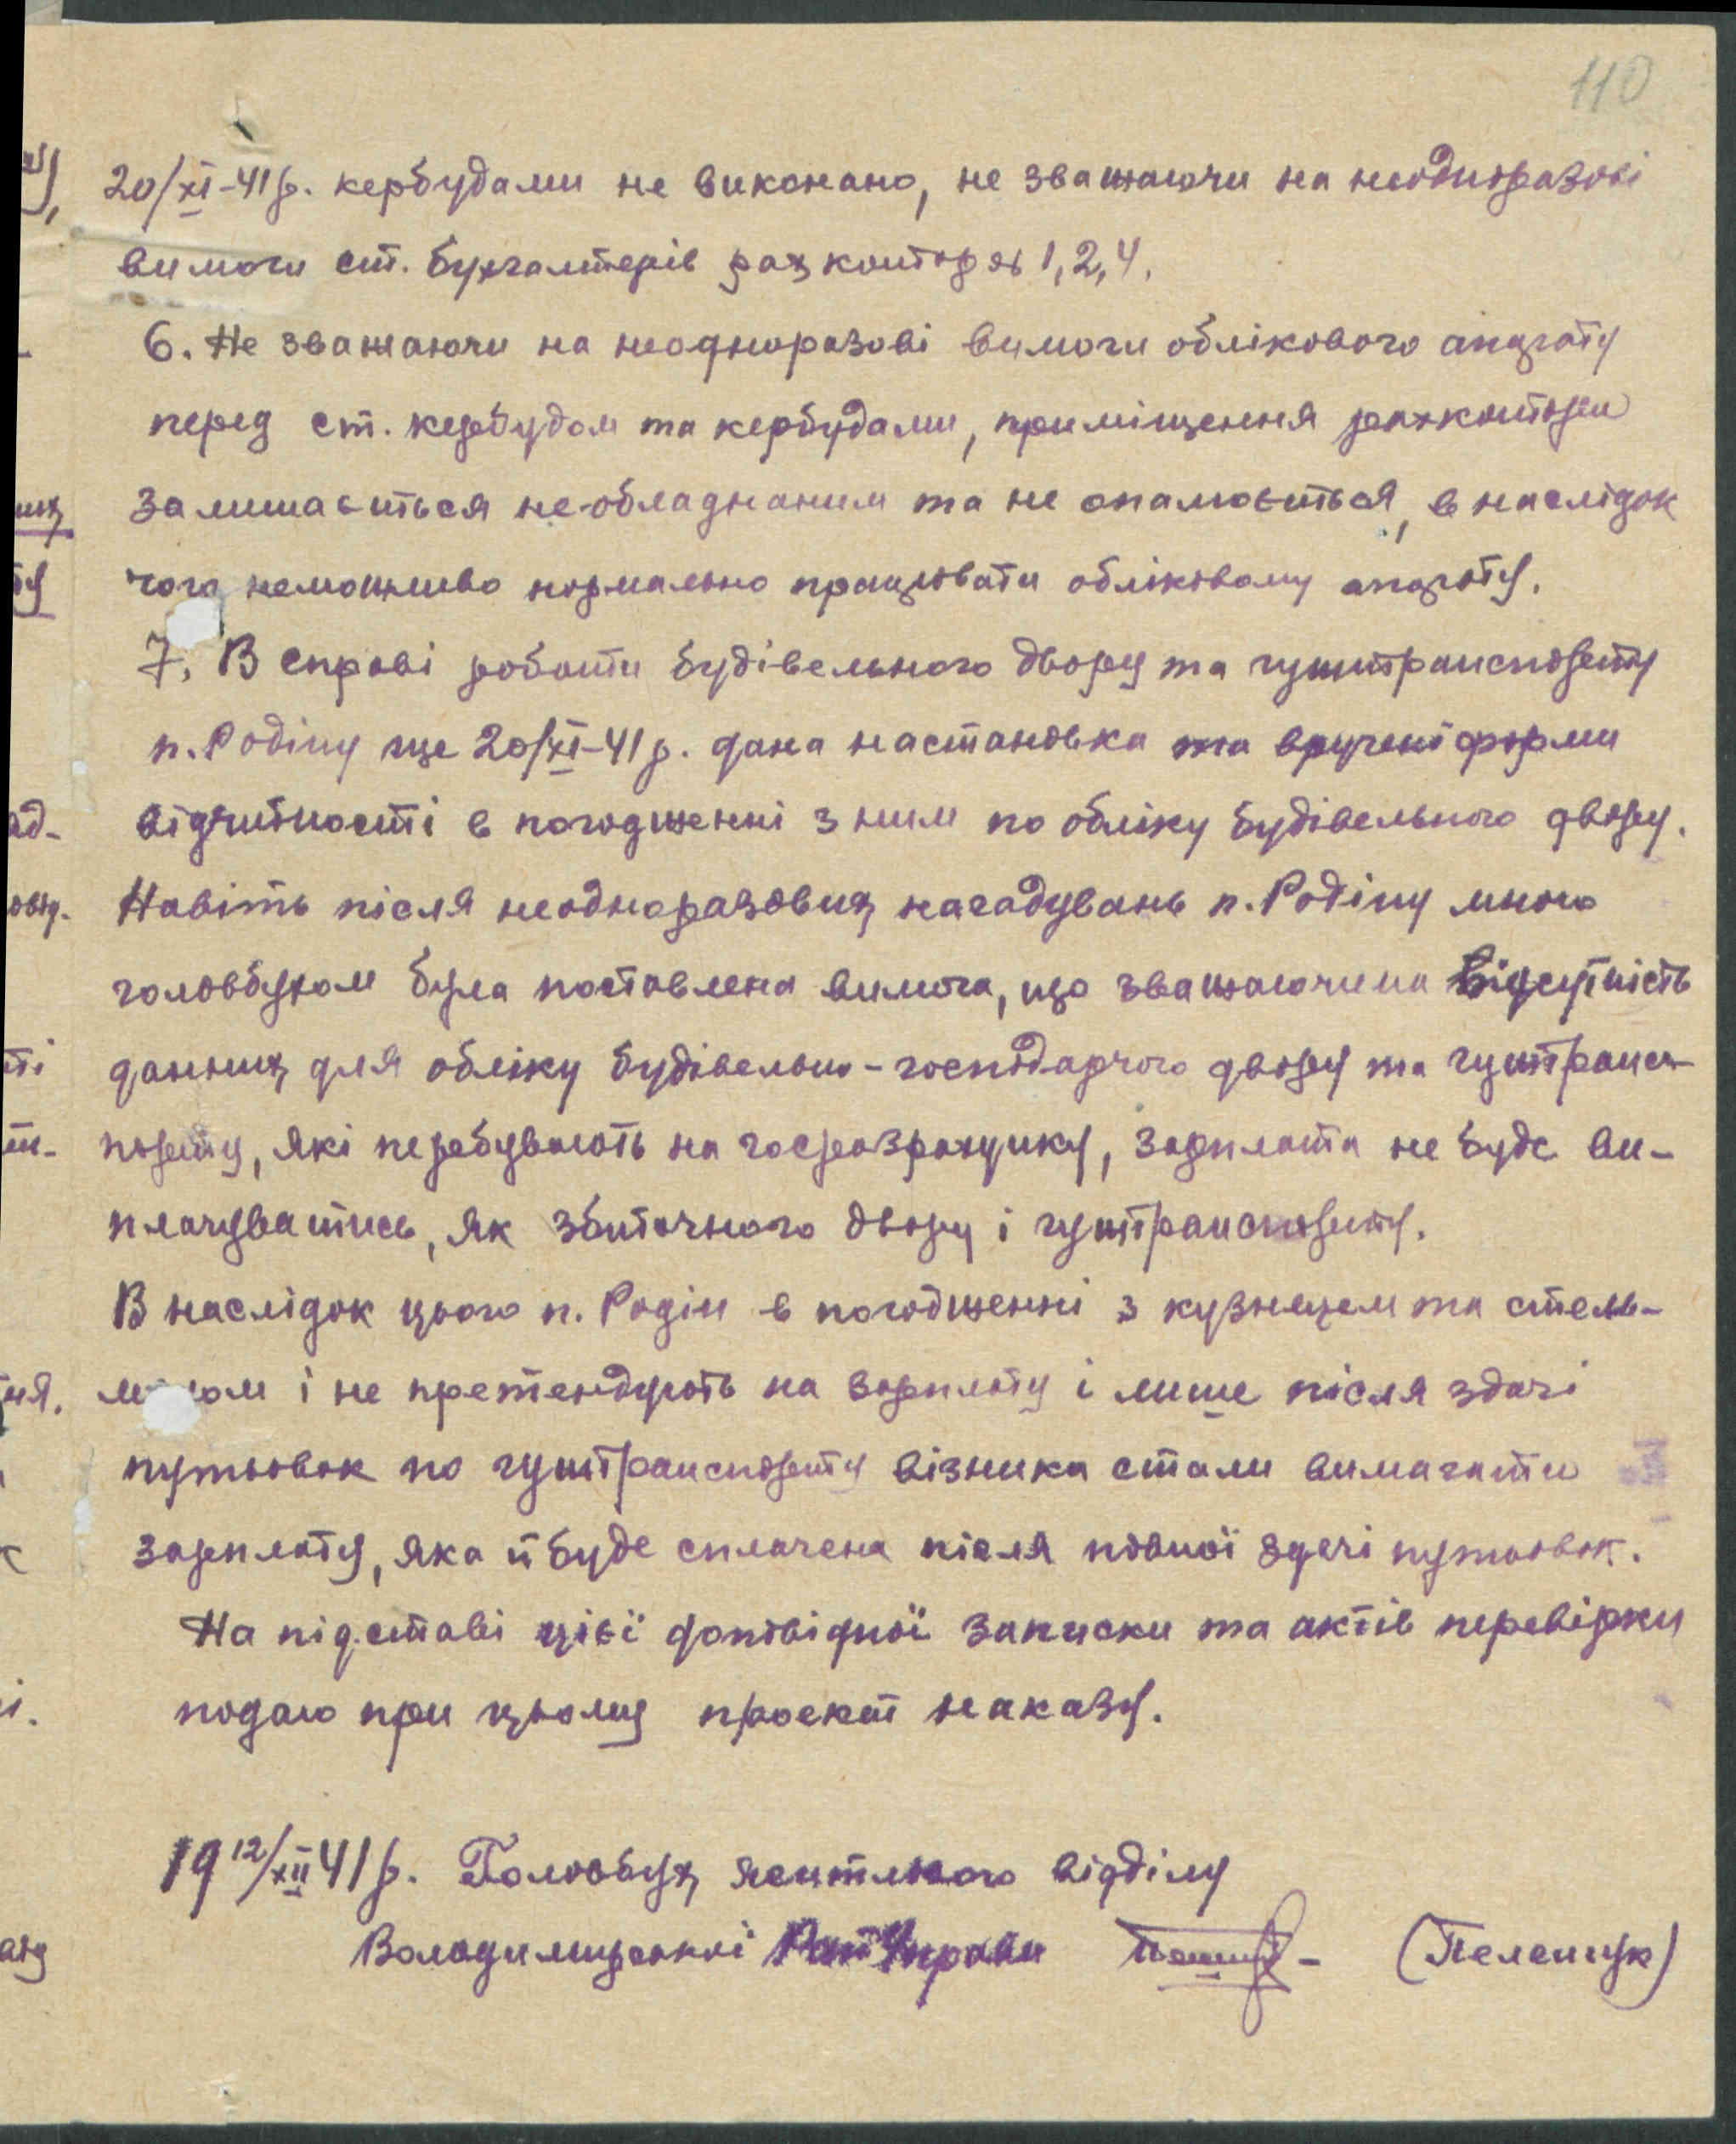 110
20/XI-41 р. кербудами не виконано, не зважаючи на неодноразові
вимоги ст. бухгалтерів рахконтор № 1, 2, 4.
6. Не зважаючи на неодноразові вимоги облікового апарату
перед ст. кербудом та кербудами, приміщення рахконтори
залишається необладнаним та не опалюється, в наслідок
чого неможливо нормально працювати обліковому апарату.
7. В справі роботи будівельного двору та гужтранспорту
п. Родіну ще 20/XI-41 р. дана настановка та вручені форми
відчитності в погодженні з ним по обліку будівельного двору.
Навіть після неодноразових нагадувань п. Родіну мною
головбухом була поставлена вимога, що зважаючи на відсутність
данних для обліку будівельно-господарчого двору та гужтранс-
порту, які перебувають на госпрозрахунку, зарплата не буде ви-
плачуватись, як збиточного двору і гужтранспорту.
В наслідок цього п. Родін в погодженні з кузнецем та стель-
махом і не претендують на зарплату і лише після здачі
путьовок по гужтранспорту візники стали вимагати
зарплату, яка й буде сплачена після повної здачі путьовок.
На підставі цієї доповідної записки та актів перевірки
подаю при цьому проект наказу.
19 12/XII 41 р. Головбух житлового відділу
Володимирської Управи (Пелещук)